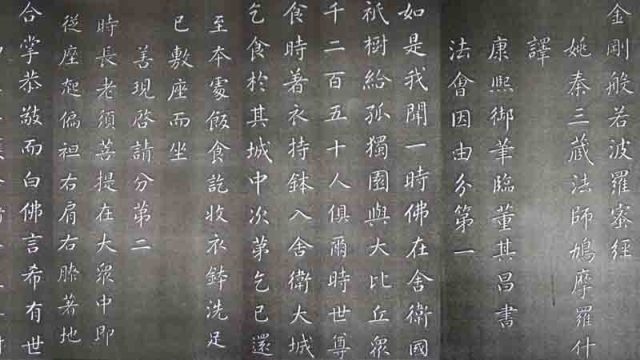 金剛般若波羅蜜經
姚秦三藏法師鳩摩羅什
譯
康熙御筆臨董其昌書
法會因由分第一
如是我聞一時佛在舍衛國
祇樹給孤獨園與大比丘眾
千二百五十人俱爾時世尊
食時著衣持鉢入舍衛大城
乞食於其城中次第乞已還
至本處飯食訖收衣鉢洗足
已敷座而坐
善現啓請分第二
時長老須菩提在大眾中即
從座起偏袒右肩右膝著地
合掌恭敬而白佛言希有世